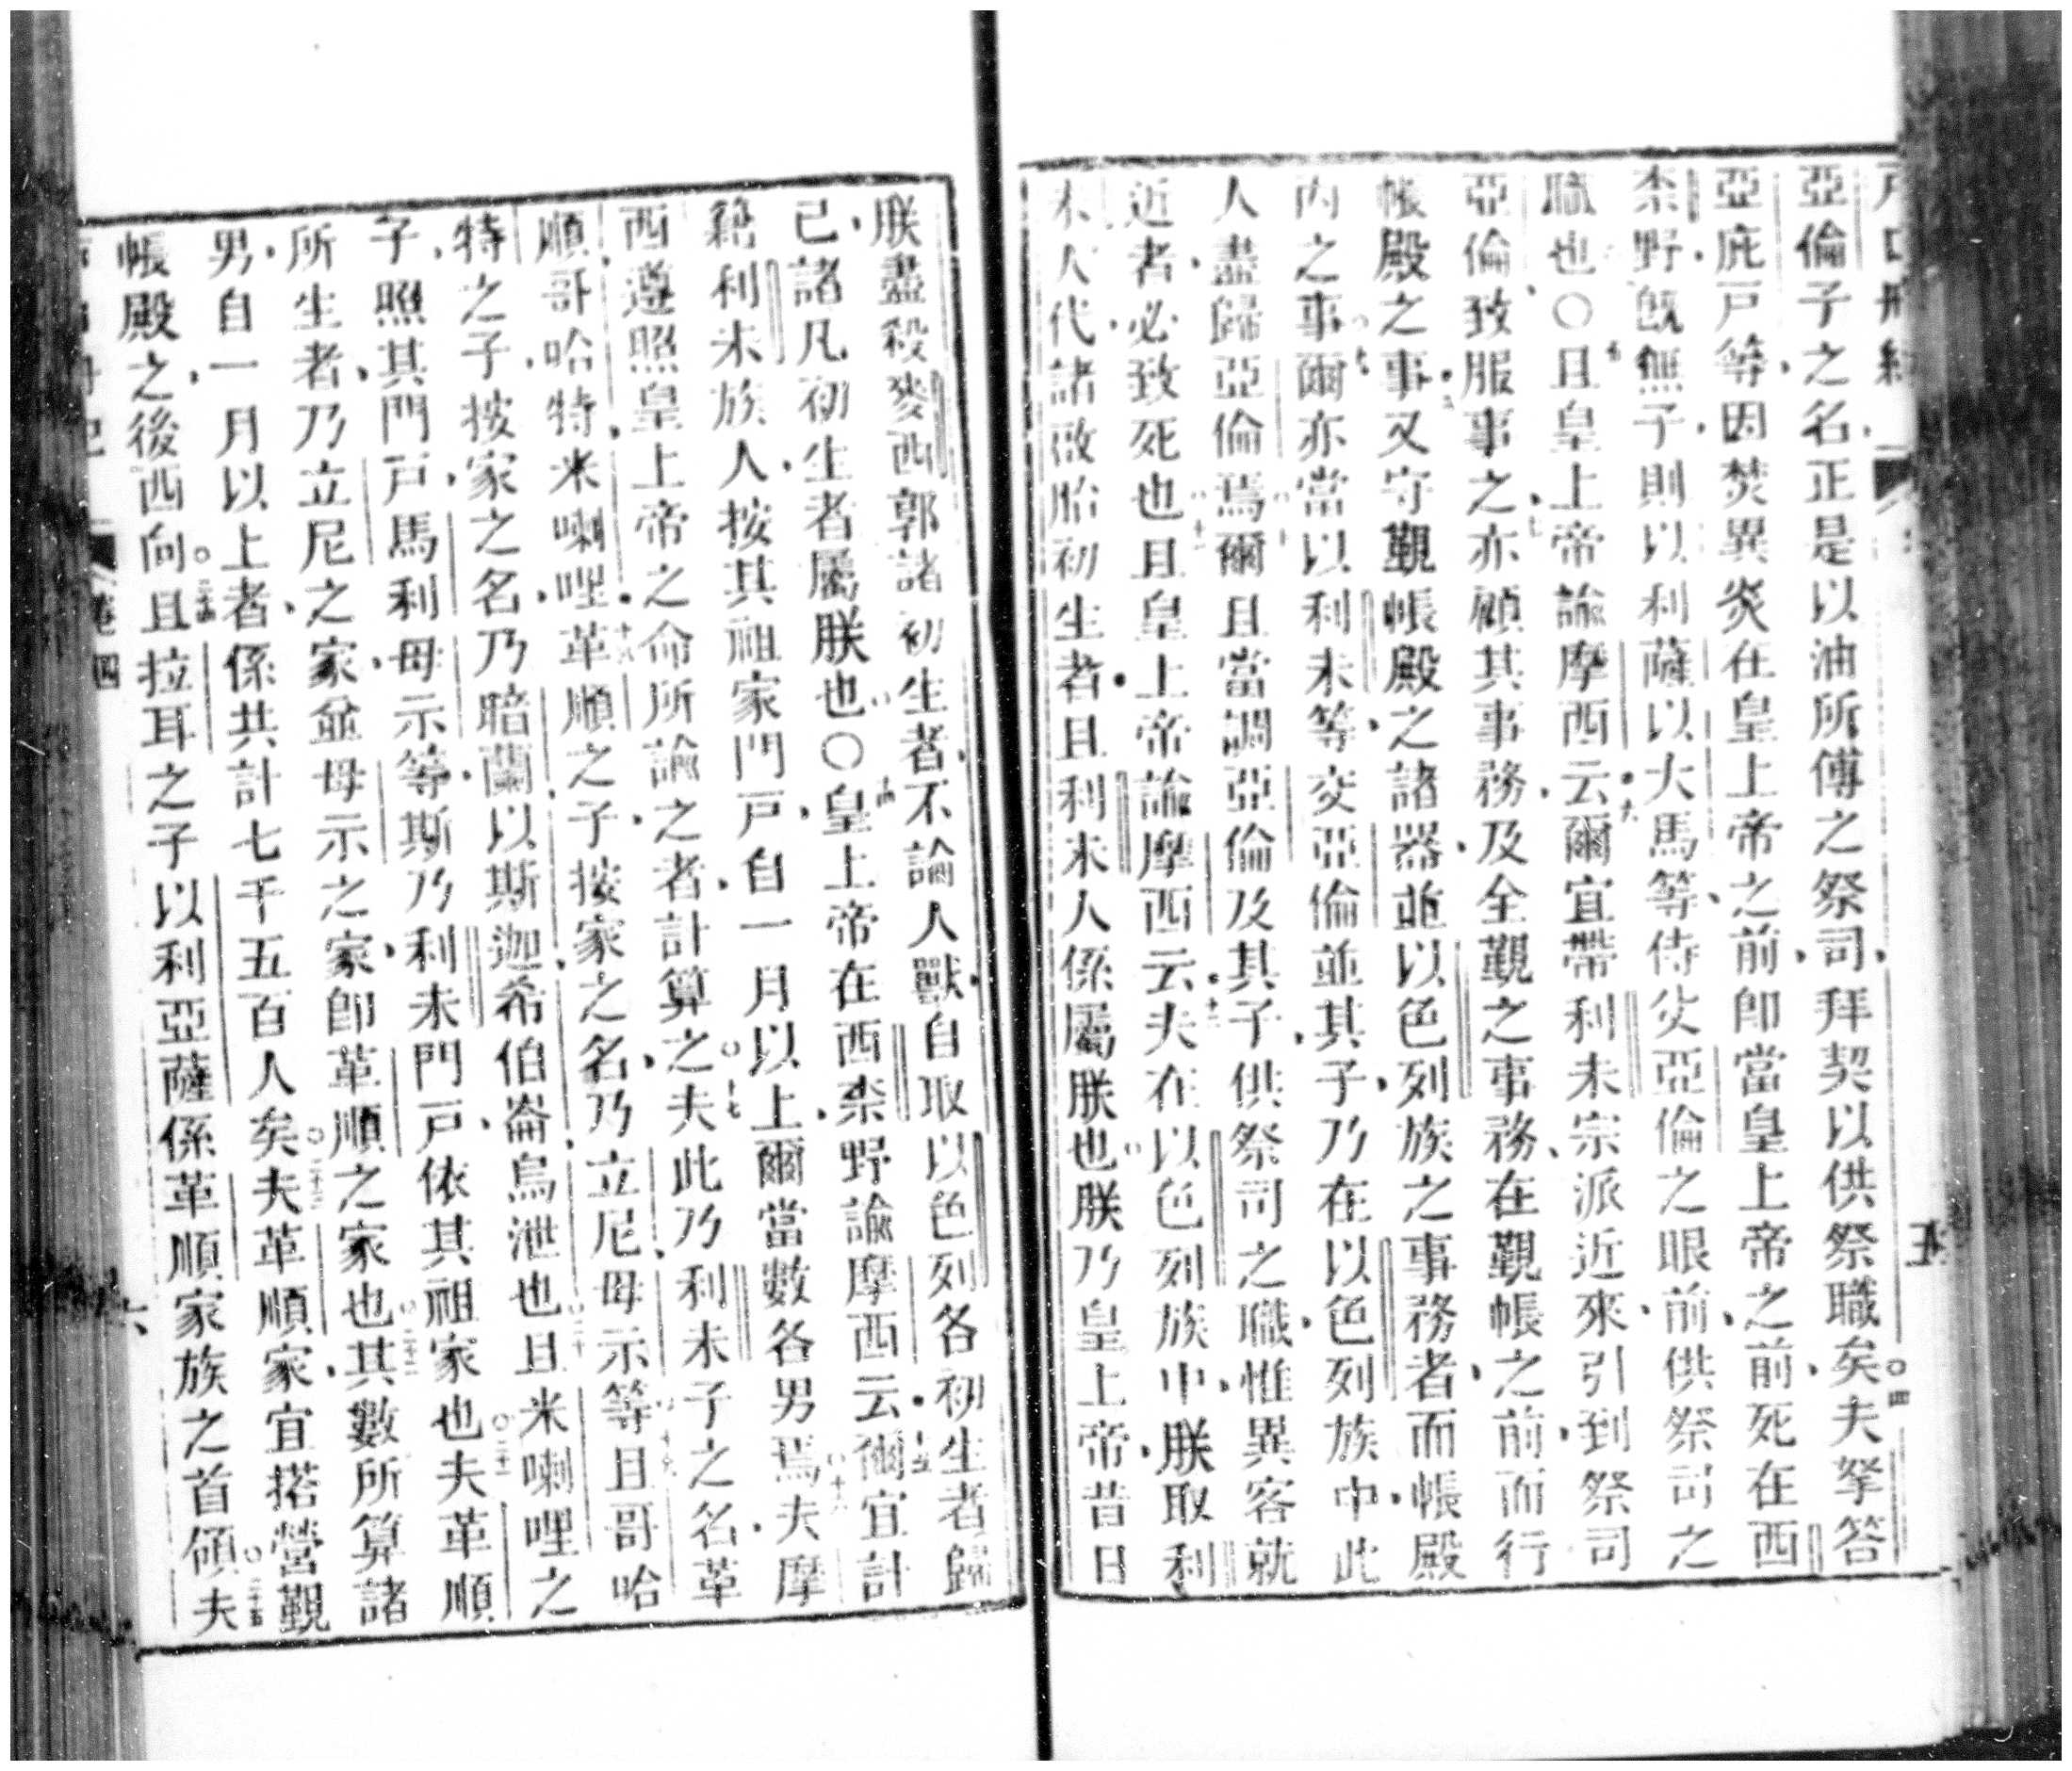 亞倫子之名正是以油所傅之祭司拜契以供祭職矣夫拏答
亞庇戸等因焚異炎在皇上帝之前卽當皇上帝之前死在西
柰野旣無子則以利薩以大馬等侍父亞倫之眼前供祭司之
職也〇且皇上帝諭摩西云爾宜帶利未宗派近來引到祭司
亞倫致服事之亦顧其事務及全覲之事務在覲帳之前而行
帳殿之事又守覲帳殿之諸器並以色列族之事務者而帳殿
內之事爾亦當以利未等交亞倫並其子乃在以色列族中此
人盡歸亞倫焉爾且當調亞倫及其子供祭司之職惟異客就
近者必致死也且皇上帝諭摩西云夫在以色列族中朕取利
未人代諸啟胎初生者且利未人係屬朕也朕乃皇上帝昔日
朕盡殺麥西郭諸初生者不論人獸自取以色列各初生者歸
己諸凡初生者屬朕也〇皇上帝在西柰野諭摩西云爾宜計
籍利未族人按其祖家門戸自一月以上爾當數各男焉夫摩
西遵照皇上帝之命所諭之者計算之夫此乃利未子之名革
順哥哈特米喇哩革順之子按家之名乃立尼母示等且哥哈
特之子按家之名乃暗蘭以斯迦希伯崙烏泄也且米喇哩之
子照其門戸馬利母示等斯乃利未門戸依其祖家也夫革順
所生者乃立尼之家並母示之家卽革順之家也其數所算諸
男自一月以上者係共計七千五百人矣夫革順家宜搭營覲
帳殿之後西向且拉耳之子以利亞薩係革順家族之首領夫
卷四 六